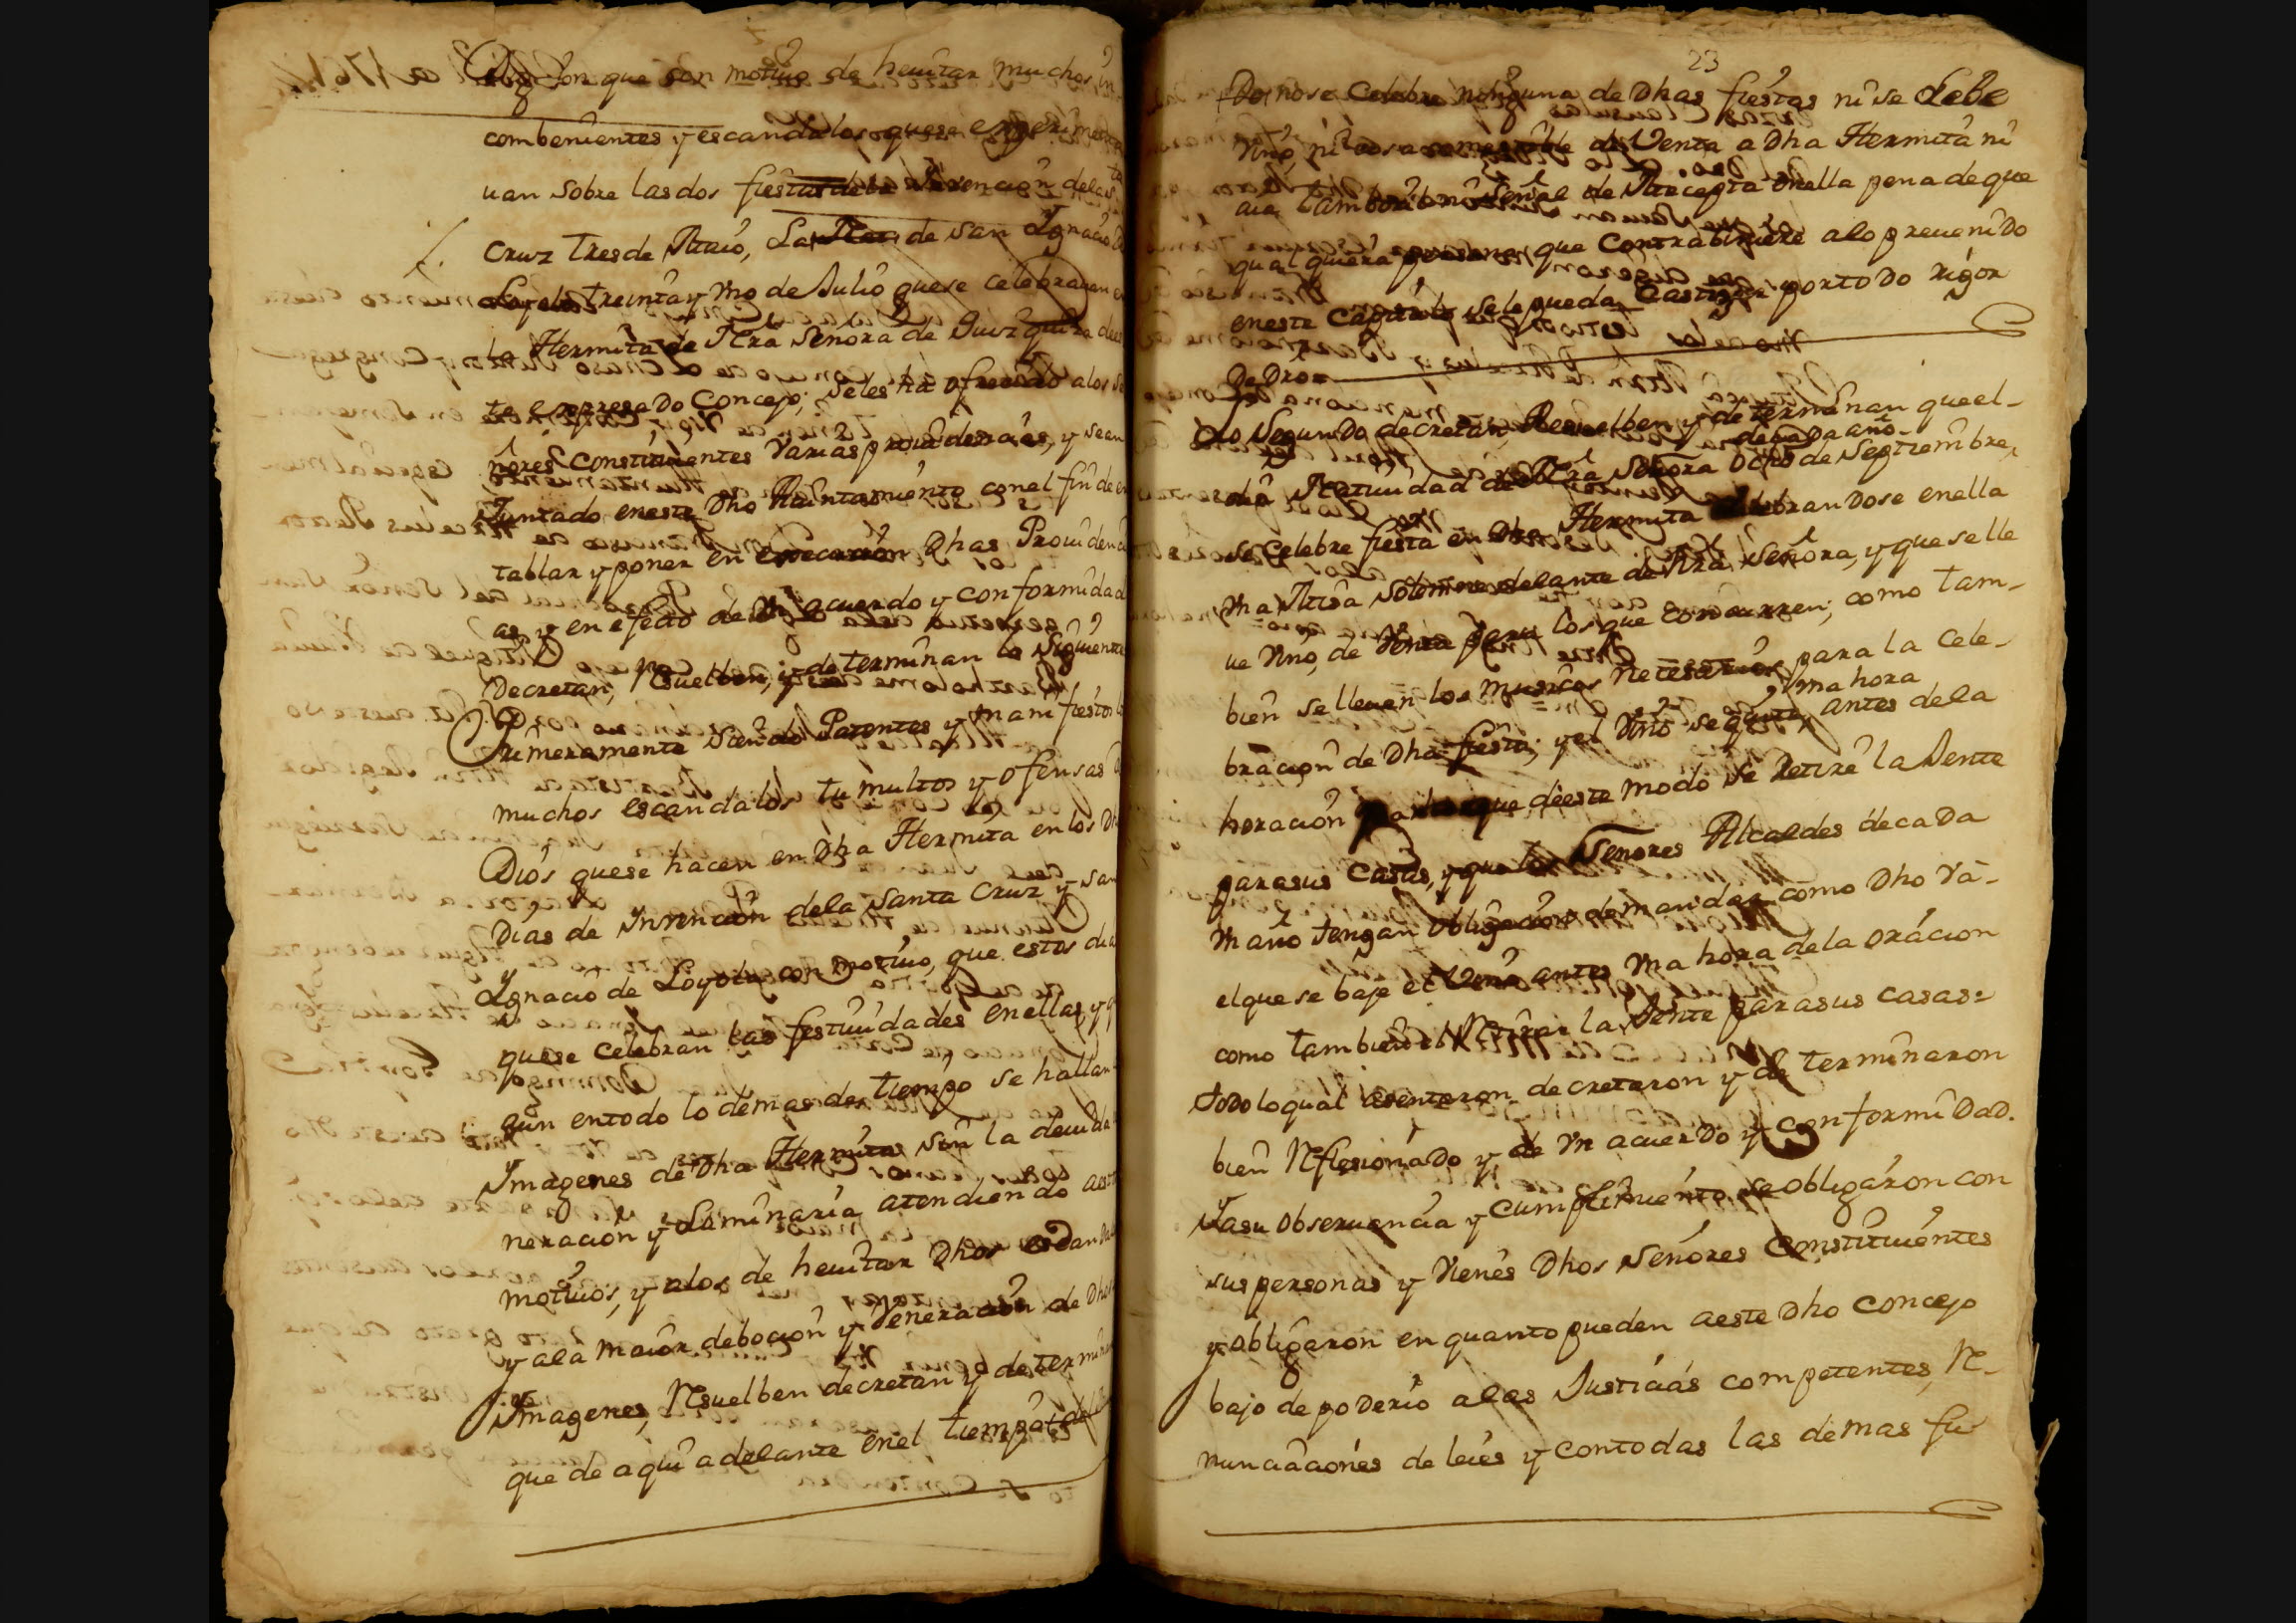 que con motiuo de heuitar muchos in
combenientes y escandalos que se experimenta
uan sobre las dos fiestas de la Invencion de la sta
Cruz tres de Maio, La de san Ygnacio de
Loyola treinta y vno de Julio que se celebrauan en
la Hermita de Nra Señora de Guizquiza de es
te expresado Concejo; se les ha ofrecido a los se
ñores Constituientes varias prouidencias, y sean
Juntado en este Dho Aiuntamiento con el fin de en
tablar y poner en execucion Dhas Prouidenci
as y en efecto de vn acuerdo y conformidad
Decretan, Resuelben, y determinan lo siguiente
Primeramente siendo Patentes y manifiestos los
muchos escandalos tumultos y ofensas de
Dios que se hacen en Dha Hermita en los Dhos
Dias de Invencion de la Santa Cruz y san
Ygnacio de Loyola con motiuo, que estos dias
que se celebran las festiuidades en ellas, y q
aun en todo lo demas del tiempo se hallan
Imagenes de Dha Hermita sin la deuida
neracion y Laminaria atendiendo a estos
motiuos, y a los de heuitar Dhos escandalos
y a la maior debocion y veneracion de Dhas
Imagenes, Resuelben decretan y determinan
que de aqui adelante en el tiempo
23
no se celebre ninguna de Dhas fiestas ni se Lebe
vino, ni cosa comestible de venta a Dha Hermita ni
aia tamboril ni señal de en ella pena de que
qualquiera persona que contrabiniere a lo preuenido
en este Capitulo se le pueda Castigar por todo rigor
De Dro=
Lo segundo decretan, Resuelben y determinan que el
dia Natiuidad de Nra Señora ocho de Septiembre,
de cada año
se celebre fiesta en Dha Hermita celebrandose en ella
vna Misa solemne delante de Nra Señora, y que se lle
ue vino, de venta para los que concurren; como tam-
bien se lleuen los musicos necesarios para la cele-
bracion de Dha fiesta; y el vino se quite, vna hora antes de la
horacion para que de este modo se Retire la Jente
para sus casas, y que los Señores Alcaldes de cada
vn año tengan obligacion de mandar como Dho va-
el que se baje el vino antes vna hora de la oracion
como tambien el Retirar la Jente para sus casas=
todo lo qual asentaron decretaron y determinaron
bien Reflesionado y de vn acuerdo y conformidad.
Y a su obseruancia y cumplimiento se obligaron con
sus personas y vienes Dhos Señores Constituientes
y obligaron en quanto pueden a este Dho Concejo
bajo de poderio a las Justicias competentes, Re-
nunciaciones de leies y con todas las demas fir